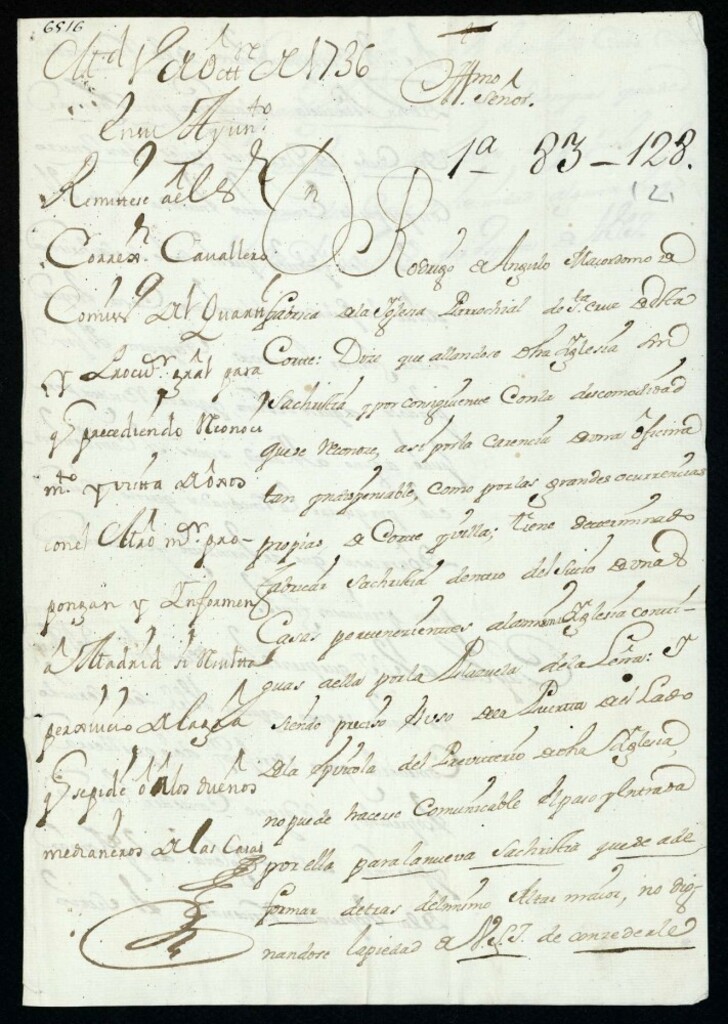 6516
Md
de 1736
Illmo Señor.
En su Ayunto
1a 83-128.
(2)
Remittese al Sr
Correxr Cavallero
Comisso del Quartel
y Procudr gral para
q precediendo Reconoci
mto y vista de ojos
con el Mro mr pro-
pongan y Informen
a Madrid si Resulta
perxuicio
los dueños
medianeros de las Casas
Rodrigo de Angulo Maiordomo de
fabrica de la Yglesia Parrochial de Sta Cruz de esta
Corte: Dice que allandose dha Yglesia sin
Sachristia y por consiguiente con la descomodidad
que se reconoce, asi por la carencia de una oficina
tan yndispensable, como por las grandes ocurrencias
propias de Corte y villa; tiene determinado
fabricar Sachristia dentro del sitio de una de
Casas pertenecientes a la misma Yglesia contì-
guas a ella por la Plazuela de la Leña: Y
siendo preciso el uso de la Puerta del Lado
de la Epistola del Presviterio de dha Yglesia,
no puede hacerse comunicable el paso y entrada
por ella para la nueva Sachristia que se a de
formar detras del mismo Altar maior, no dig-
nandose la piedad de V.S.I. de concederle